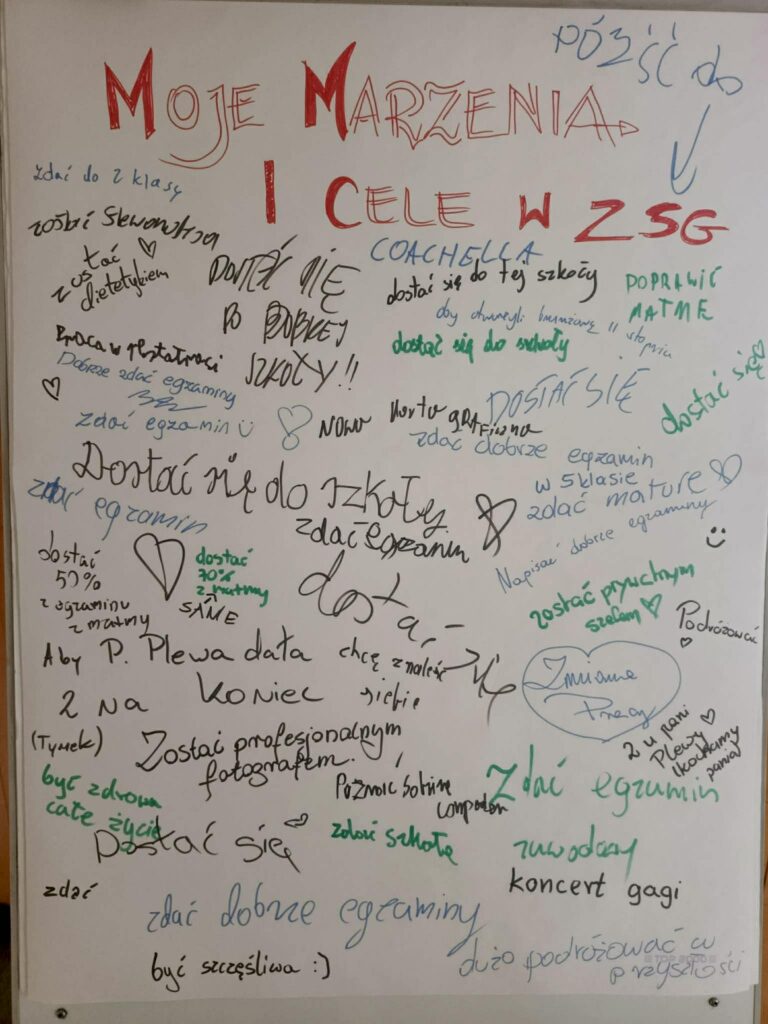 PÓZIŚĆ do
MOJE MARZENIA
I CELE W ZSG
zdać do 2 klasy
zostać
zostać
dietetykiem
DOSTAĆ SIĘ
DO DOBREJ
SZKOŁY!!
COACHELLA
dostać się do tej szkoły
DOPRAWIĆ
MATME
aby otworzyli branżową II stopnia
dostać się do szkoły
Praca w
Dobrze zdać egzaminy
zdać egzamin
NOWA karta GRAFICZNA
DOSTAĆ SIĘ
dostać się
zdać dobrze egzamin
w 5 klasie
zdać mature
Dostać się do szkoły
zdać egzamin
zdać egzamin
Napisać dobrze egzaminy
dostać
50%
z egzaminu
z matmy
dostać
70%
z matmy
SAME
dostać się
zostać prywatnym
szefem
Podróżować
Aby P. Plewa dała
2 na koniec
(Tymek)
chcę znaleść
siebie
Zmiana
Pracy
2 u pani
Plewy
(kochamy
panią)
Zostać profesjonalnym
fotografem.
być zdrowa
całe życie
Zdać egzamin
zawodowy
Dostać się
zdać szkołę
koncert gagi
zdać
zdać dobrze egzaminy
być szczęśliwa :)
dużo podróżować w
przyszłości